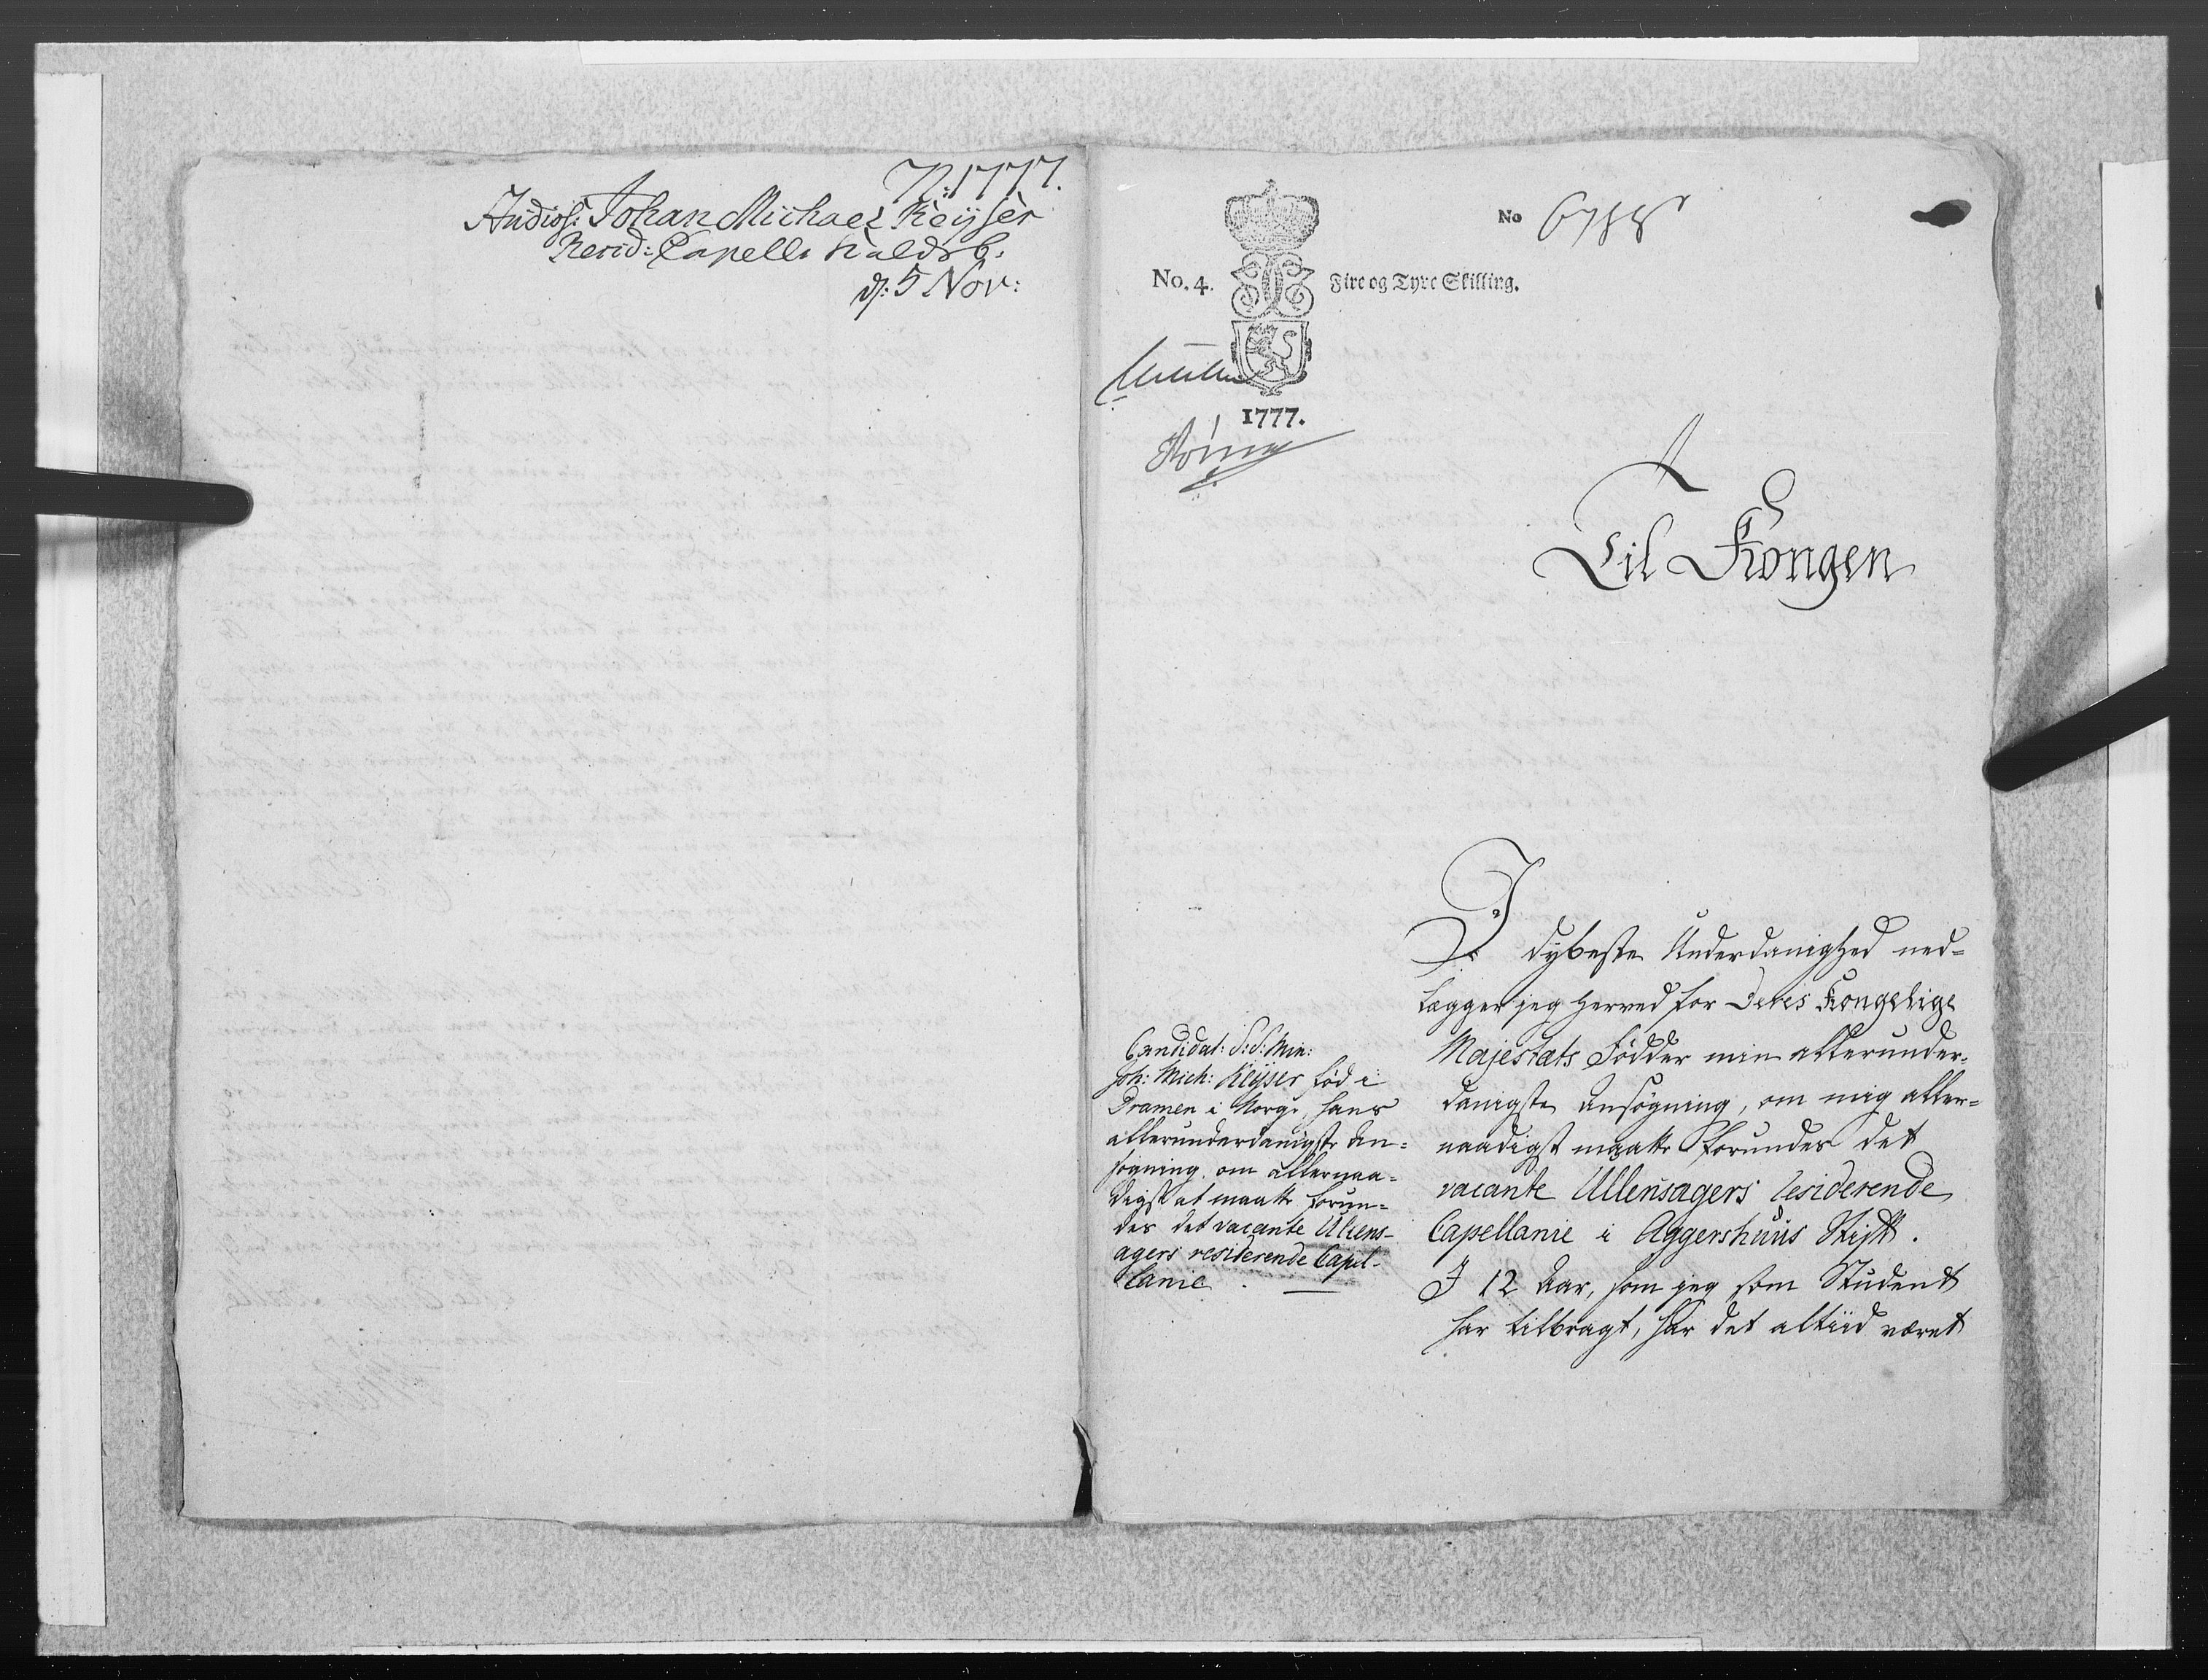 N: 1777.
Studios: Johan Michael Keyser
Resid: Capell: Kaldsb:
d: 5 Nov:
No 6788
No. 4. Fire og Tyve Skilling.
1777.
Til Kongen
I dybeste Underdanighed ned=
lægger jeg herved for Deres Kongelige
Majestæts Fødder min allerunder=
danigste Ansøgning, om mig aller=
naadigst maatte forundes det
vacante Ullensagers residerende
Capellanie i Aggershuus Stift.
I 12 Aar, som jeg som Student
har tilbragt, har det altiid været
Candidat: S: S: Min:
Joh: Mich: Keyser fød i
Dramen i Norge, hans
allerunderdanigste An=
søgning om allernaa=
digst at maatte forun=
des det vacante Ullens-
agers residerende Capel-
lanie.